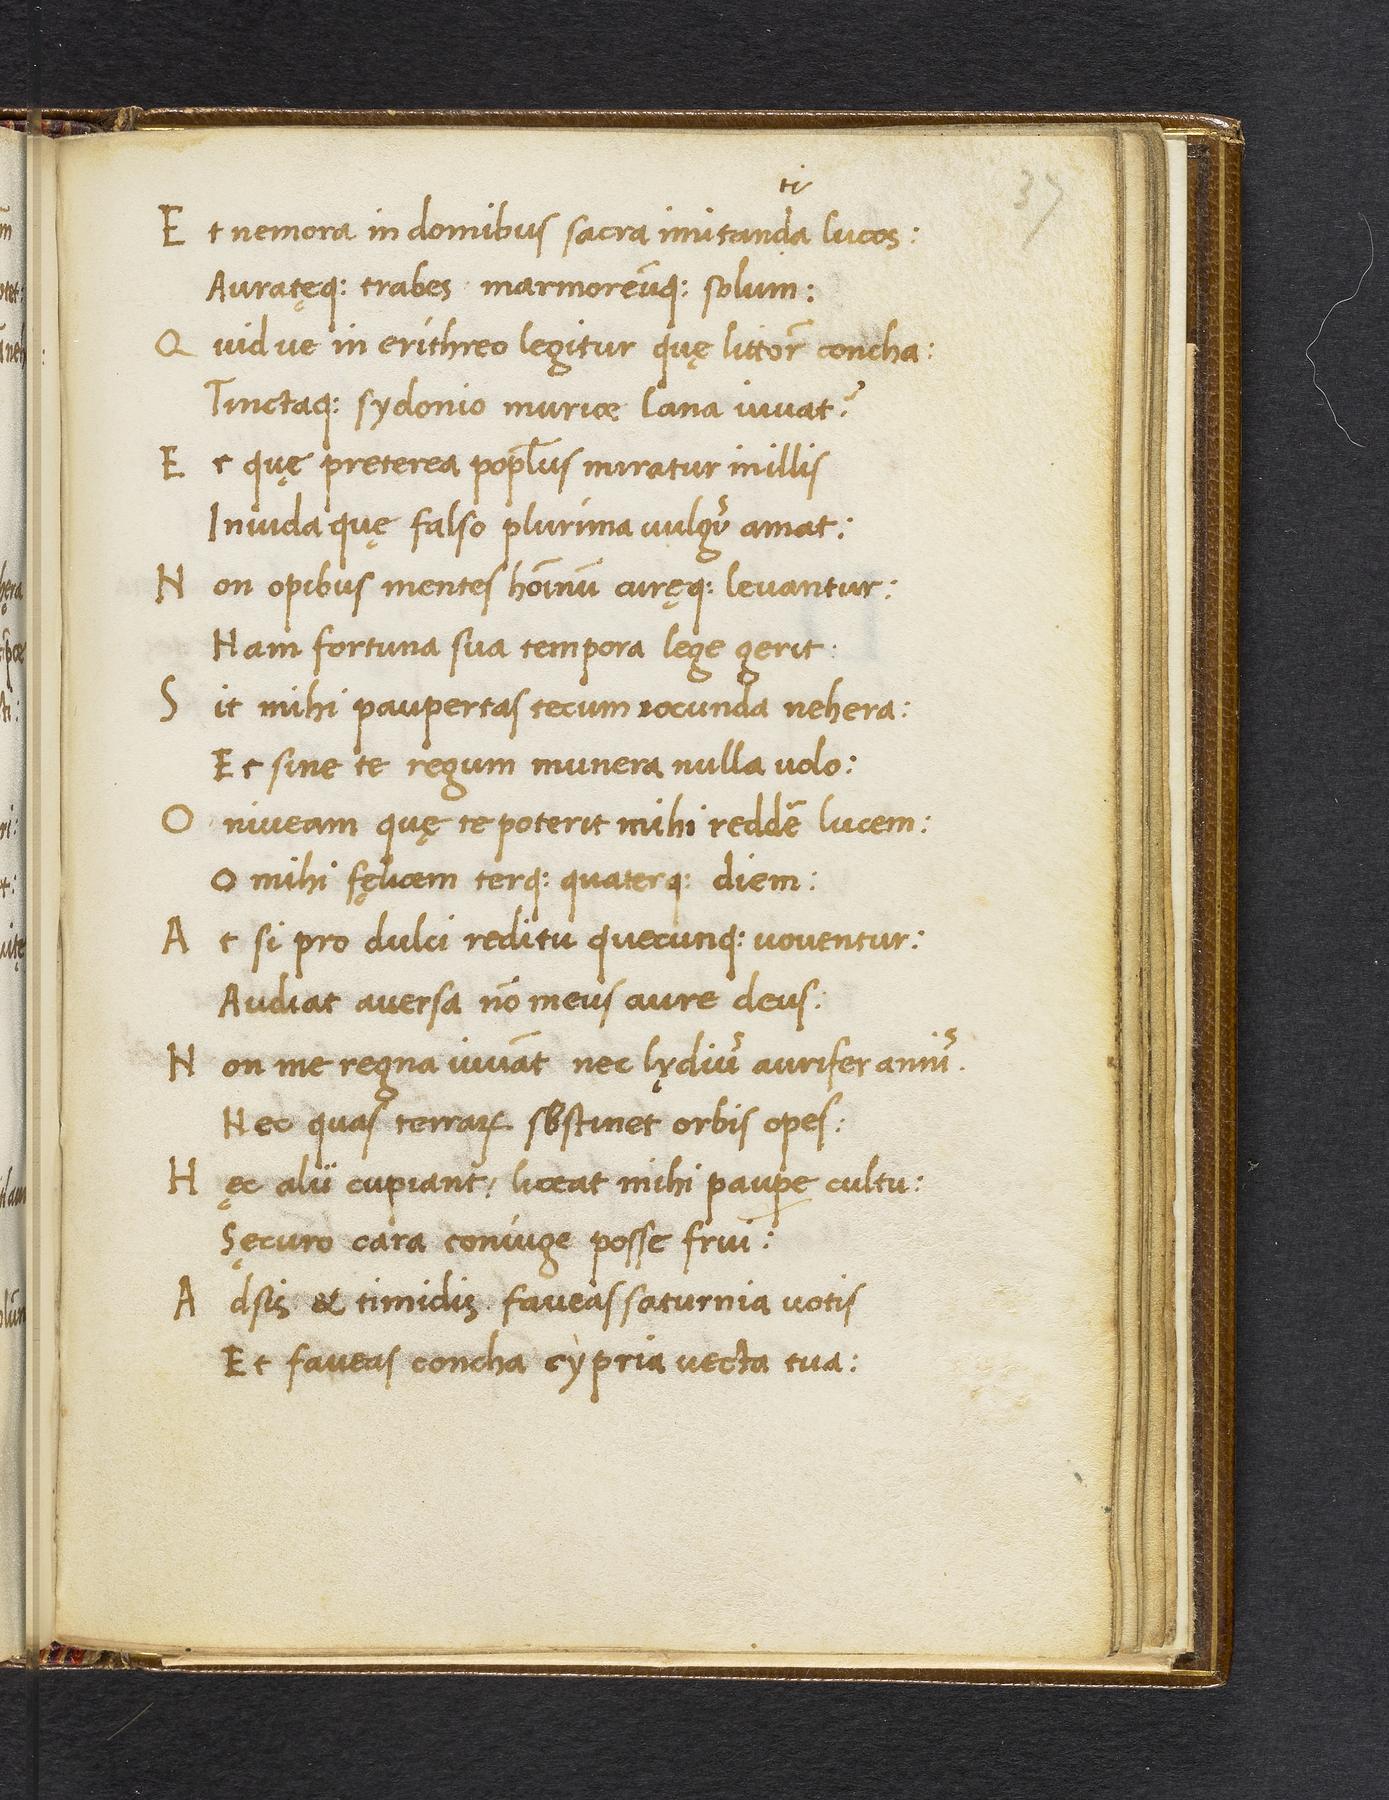 37
ti
E t nemora in domibus sacra imitanda lucos:
Auratęq: trabes marmoreūq: solum:
Q uidue in erithreo legitur quę littor̄ concha:
Tinctaq: sydonio murice lana iuuat?
E t quę preterea pop̄lus miratur in illis
Inuida quę falso plurima uulgūs amat:
N on opibus mentes hōinū curęq: leuantur:
Nam fortuna sua tempora lege gerit:
S it mihi paupertas tecum iocunda nehera:
Et sine te regum munera nulla uolo:
O niueam quę te poterit mihi reddē lucem:
O mihi fęlicem terq: quaterq: diem:
A t si pro dulci reditu quecunq: uouentur:
Audiat auersa nō meus aure deus:
N on me regna iuuāt nec lydiūs aurifer amīs.
Nec quas terraꝝ sbstinet orbis opes:
H ęc alii cupiant; liceat mihi paupe cultu:
Sęcuro cara coniuge posse frui:
A dsis & timidis faueas saturnia uotis
Et faueas concha cypria uecta tua: